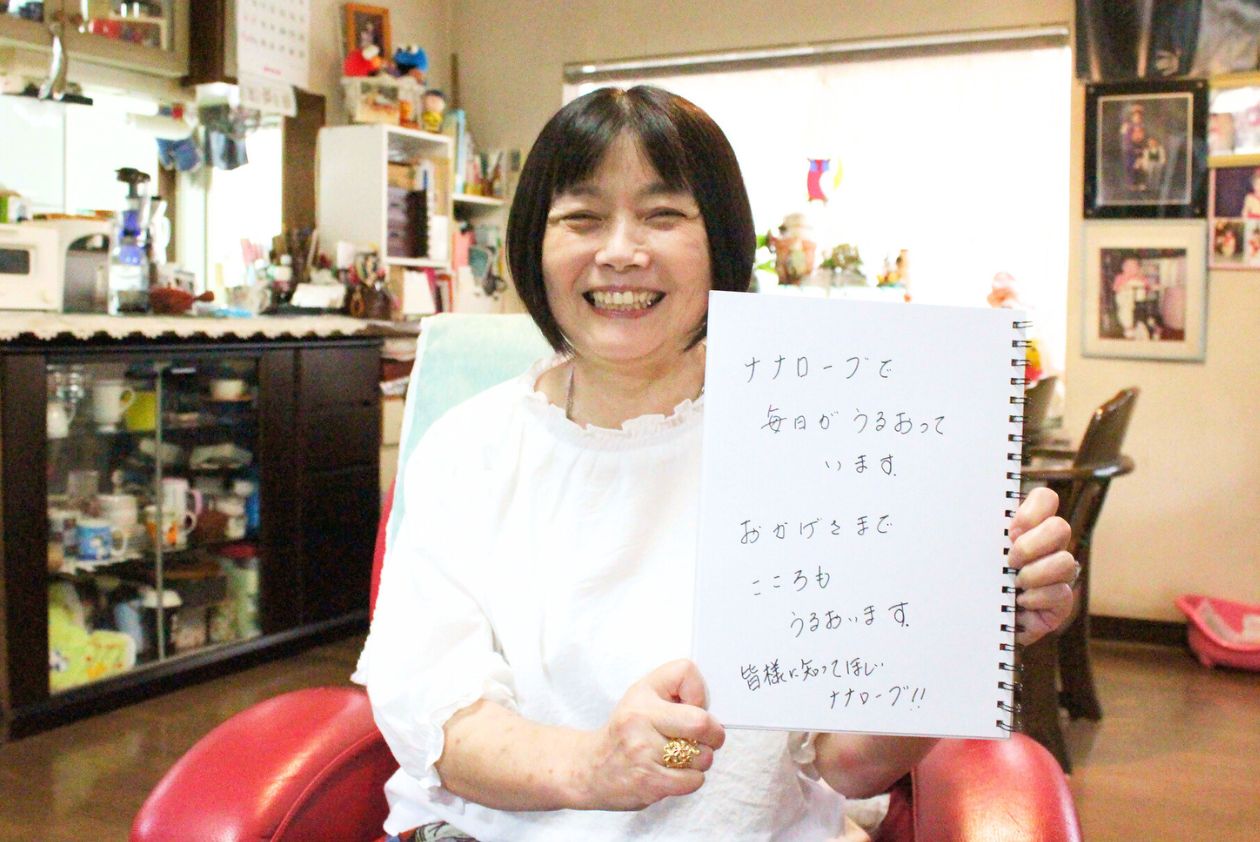 ナナローブで
毎日がうるおって
います。
おかげさまで
こころも
うるおいます。
皆様に知ってほしい
ナナローブ!!